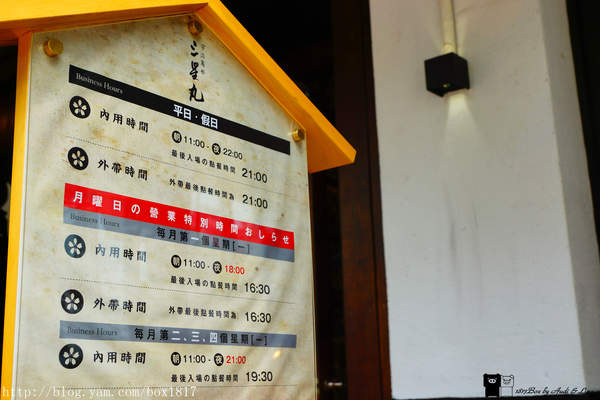 三星丸
Business Hours
平日・假日
內用時間
朝 11:00 - 夜 22:00
最後入場の點餐時間 21:00
外帶時間
外帶最後點餐時間為 21:00
月曜日の營業特別時間おしらせ
Business Hours
每月第一個星期[一]
內用時間
朝 11:00 - 夜 18:00
最後入場の點餐時間 16:30
外帶時間
外帶最後點餐時間為 16:30
Business Hours
每月第二、三、四個星期[一]
內用時間
朝 11:00 - 夜 21:00
最後入場の點餐時間 19:30
http://blog.yam.com/box1817
1817Box by Andi &